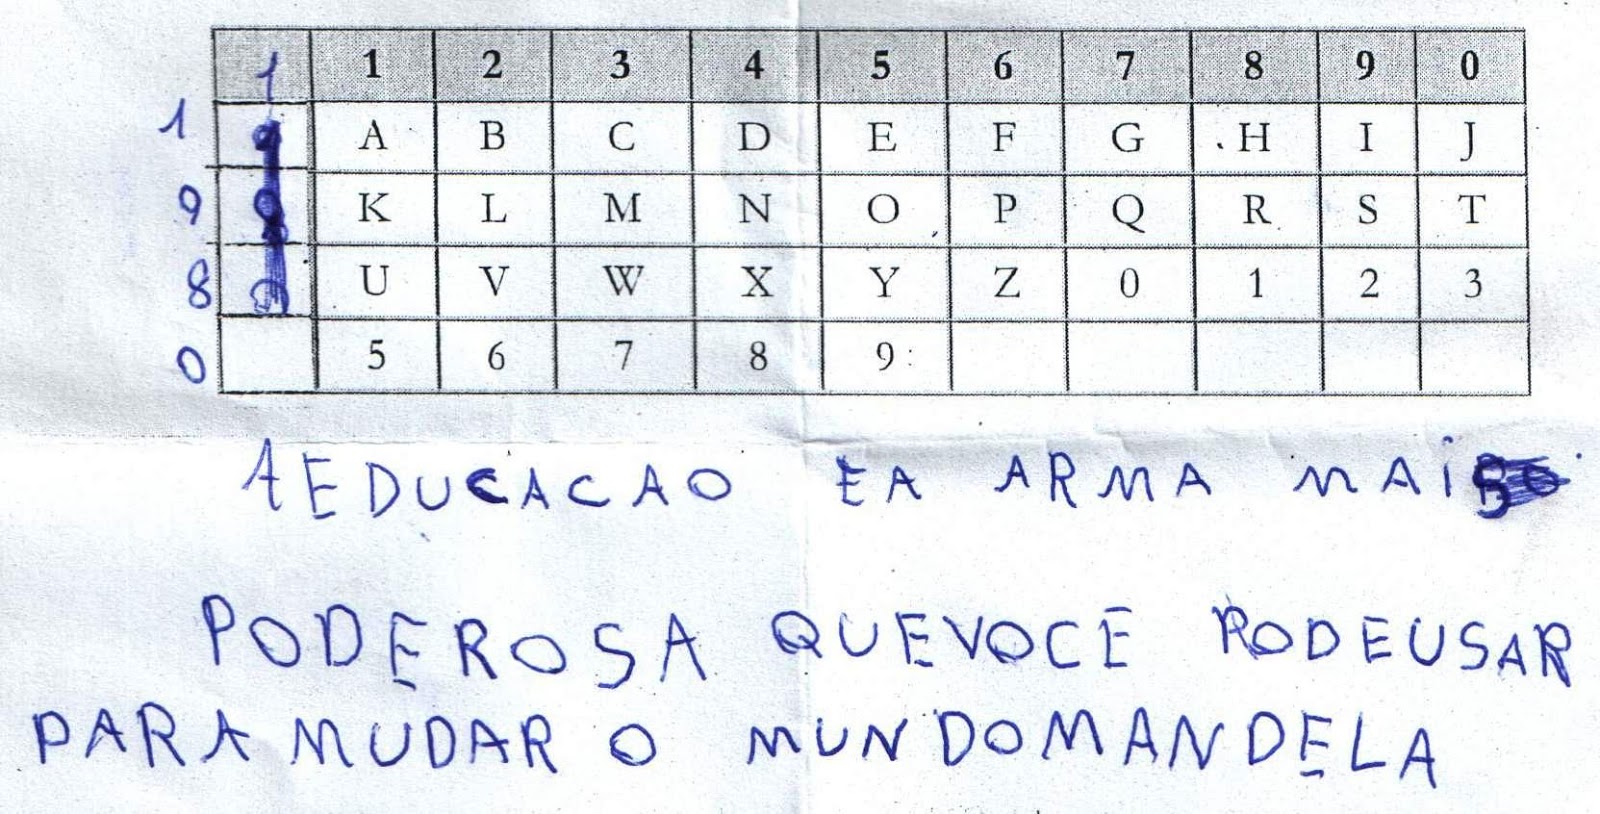 1 1 2 3 4 5 6 7 8 9 0
1 A B C D E F G .H I J
9 K L M N O P Q R S T
8 U V W X Y Z 0 1 2 3
0 5 6 7 8 9
AEDUCACAO EA ARMA MAIS
PODEROSA QUEVOCE PODEUSAR
PARAMUDAR O MUNDOMANDELA